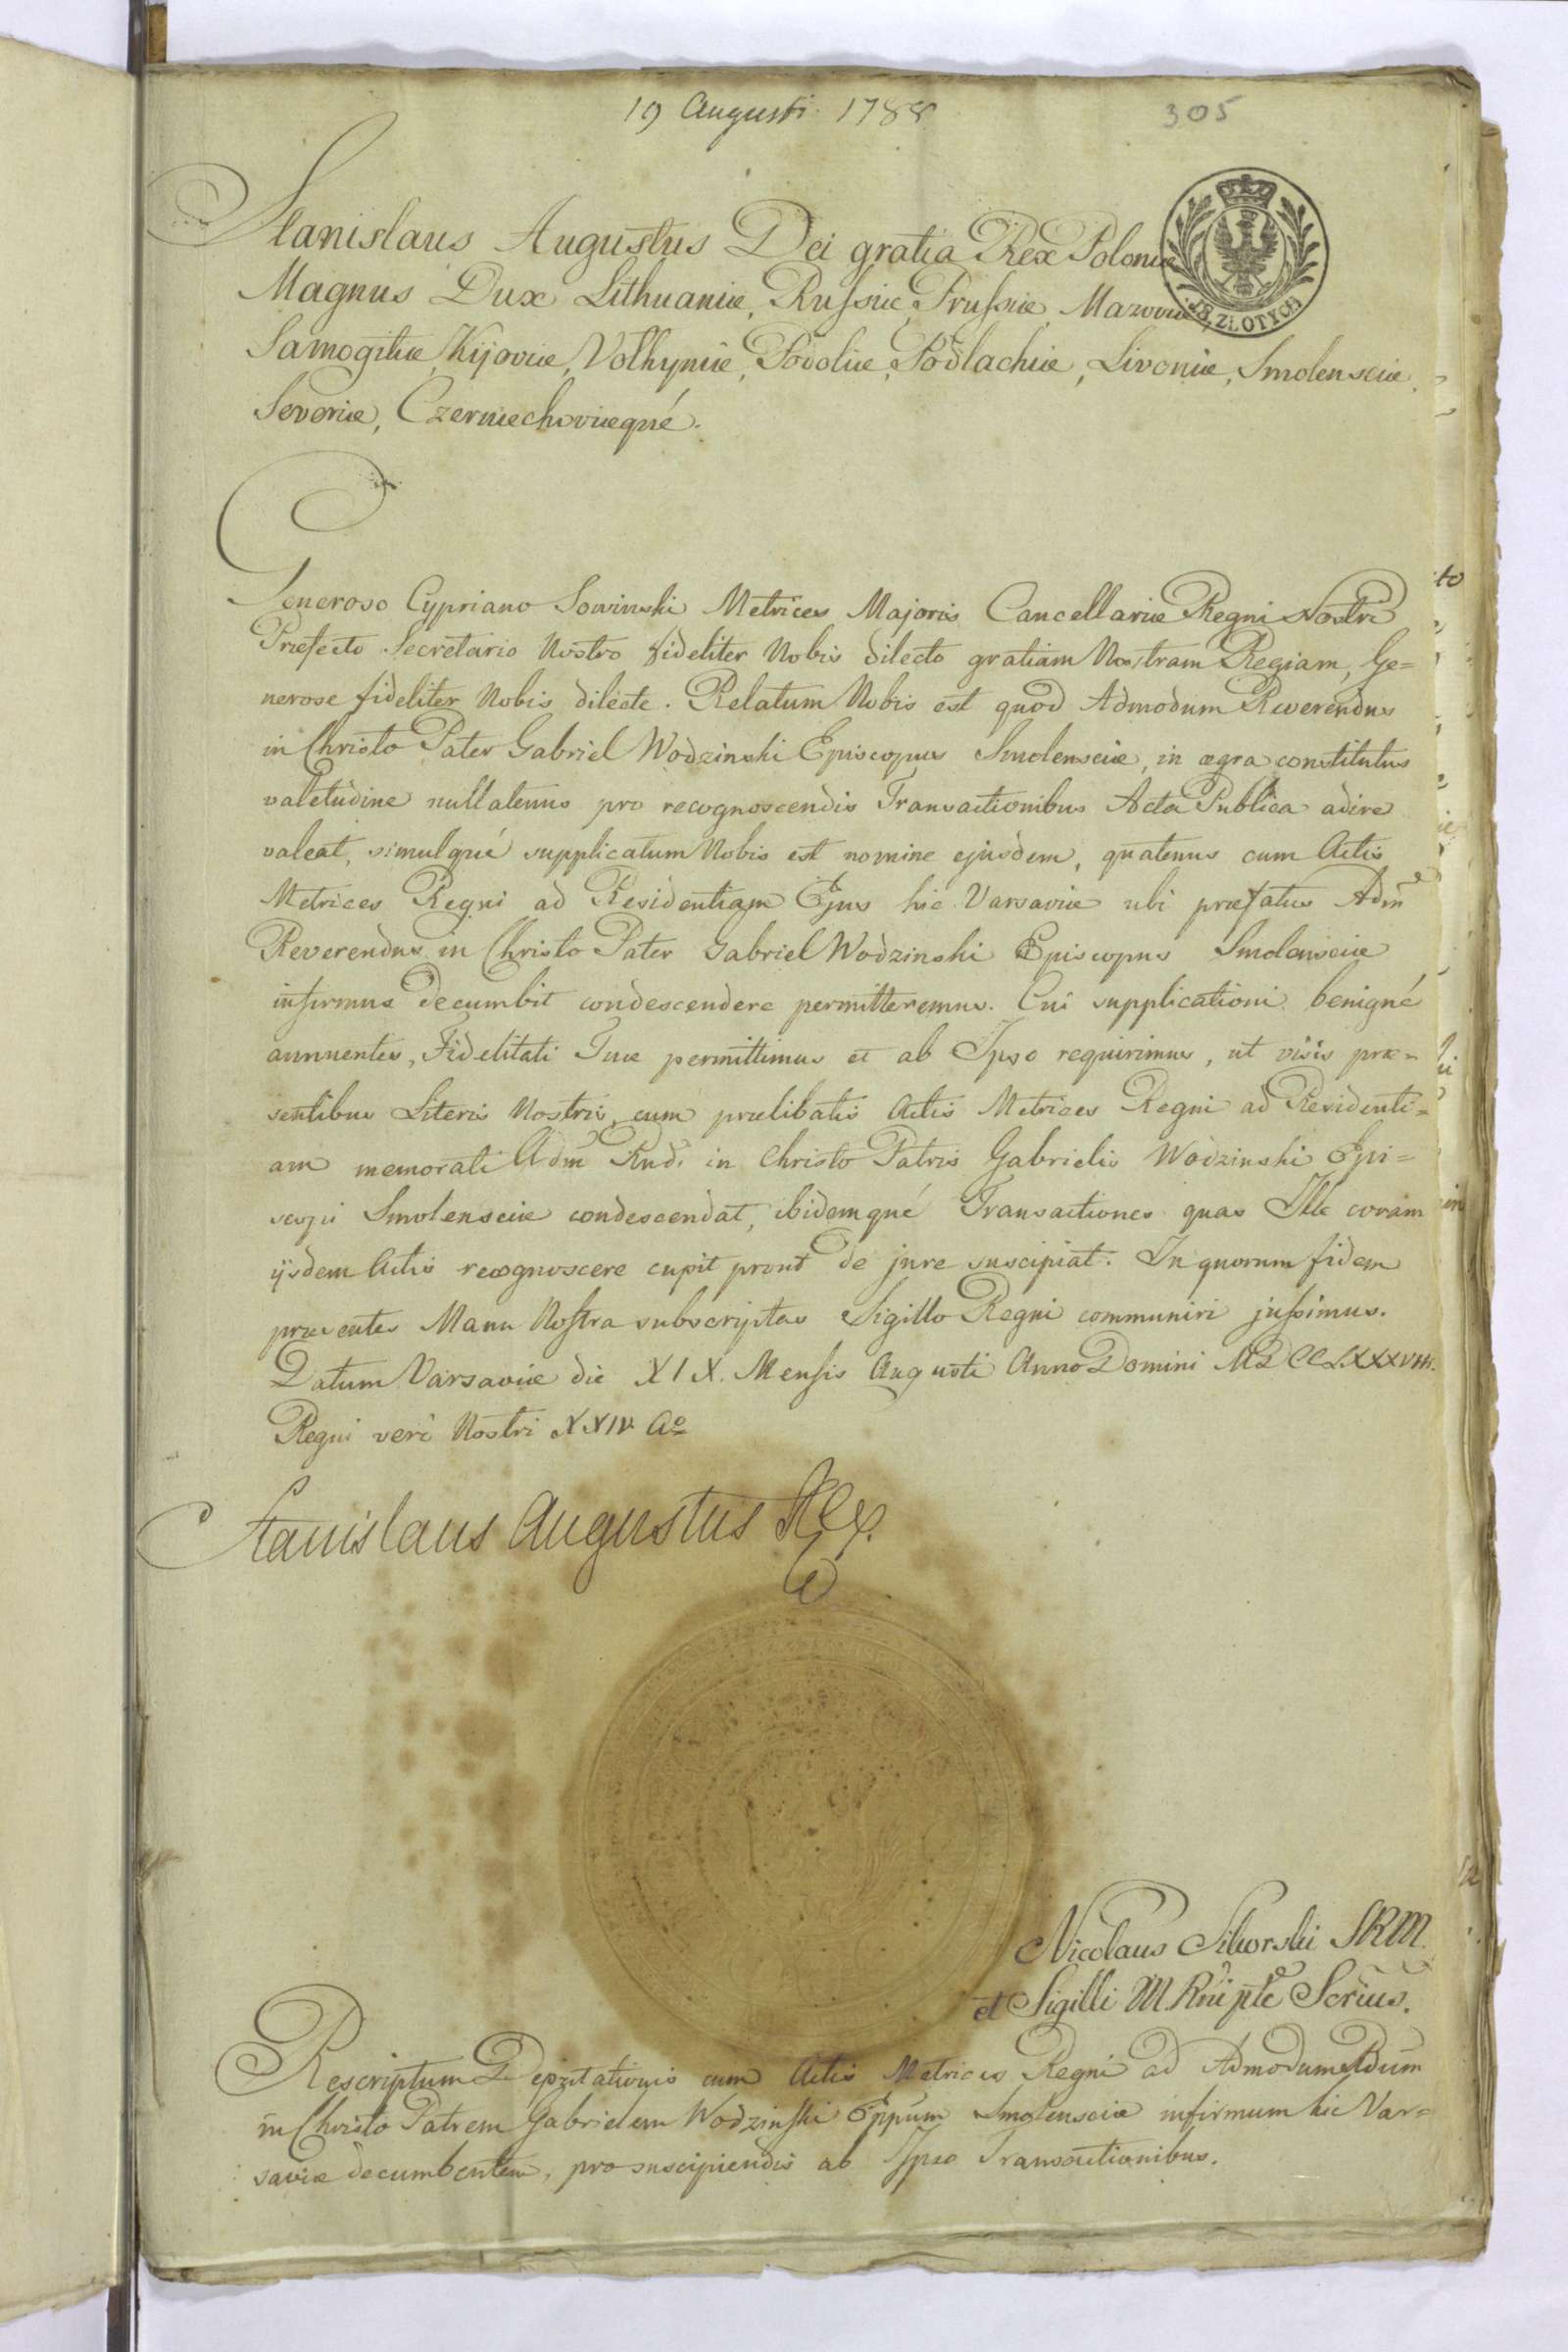 19 Augusti 1788
305
Stanislaus Augustus Dei gratia Rex Poloniæ
Magnus Dux Lithuaniæ, Rufsiæ, Prufsiæ, Mazoviæ
18 ZŁOTYCH
Samogitiæ, Kijoviæ, Volhyniæ, Podoliæ, Podlachiæ, Livoniæ, Smolensciæ
Severiæ, Czerniechoviæqué.
Generoso Cypriano Sowinski Metrices Majoris Cancellariæ Regni Nostri
Præfecto Secretario Nostro fideliter Nobis dilecto gratiam Nostram Regiam, Ge=
nerose fideliter Nobis dilecte. Relatum Nobis est quod Admodum Reverendus
in Christo Pater Gabriel Wodzinski Episcopus Smolensciæ, in ægra constitutus
valetudine nullatenus pro recognoscendis Transactionibus Acta Publica adire
valeat, simulqué supplicatum Nobis est nomine ejusdem, quatenus cum Actis
Metrices Regni ad Residentiam Ejus hic Varsaviæ ubi præfatus Adm̃
Reverendus in Christo Pater Gabriel Wodzinski Episcopus Smolensciæ
infirmus decumbit condescendere permitteremus. Cui supplicationi benigné
annuentes, Fidelitati Tuæ permittimus et ab Ipso requirimus, ut visis præ=
sentibus Literis Nostris, cum prælibatis Actis Metrices Regni ad Residenti=
am memorati Adm̃ Rndi in Christo Patris Gabrielis Wodzinski Epi=
scopi Smolensciæ condescendat, ibidemqué Transactiones quas Ille coram
ijsdem Actis recognoscere cupit prout de jure suscipiat. In quorum fidem
præsentes Manu Nostra subscriptas Sigillo Regni communiri jufsimus.
Datum Varsaviæ die XIX. Mensis Augusti Anno Domini MDCCLXXXVIII.
Regni veró Nostri XXIV Aº
Stanislaus Augustus Rex.
Nicolaus Sikorski SRM.
et Sigilli M. Rni ptẽ Scrius.
Rescriptum Deputationis cum Actis Metrices Regni ad Admodum Rdum
in Christo Patrem Gabrielem Wodzinski Eppum Smolensciæ infirmum hic Var=
saviæ decumbentem, pro suscipiendis ab Ipso Transactionibus.